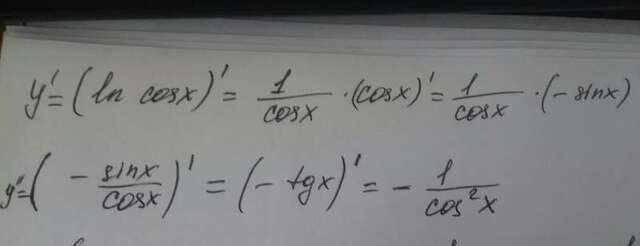 y' = (ln cosx)' = 1/cosx · (cosx)' = 1/cosx · (- sinx)
y'' = (- sinx/cosx)' = (- tgx)' = - 1/cos²x